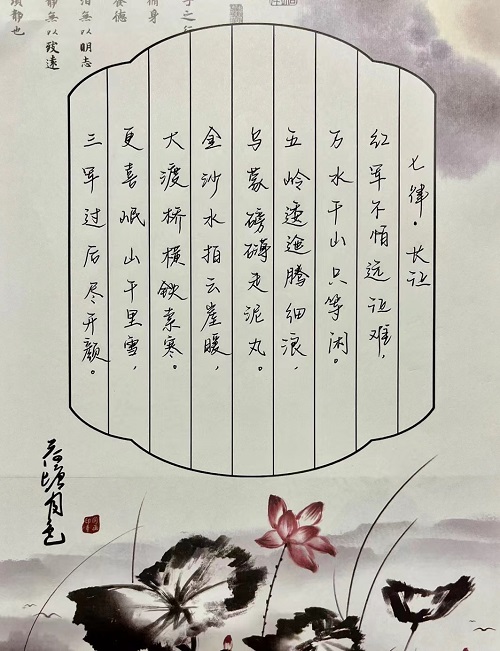 七律·长征
红军不怕远征难，
万水千山只等闲。
五岭逶迤腾细浪，
乌蒙磅礴走泥丸。
金沙水拍云崖暖，
大渡桥横铁索寒。
更喜岷山千里雪，
三军过后尽开颜。
荷塘月色
子之行
脩身
養德
泊無以明志
靜無以致遠
靜也